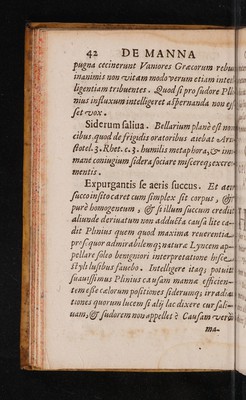 42 DE MANNA
pugna cecinerunt Vaniores Græcorum rebus
inanimis non vitam modo verum etiam intel
ligentiam tribuentes. Quod si pro sudore Pli
nius influxum intelligeret aspernanda non es
set vox.
Siderum saliua. Bellarium planè est
cibus. quod de frigidis oratoribus aiebat Ari
stotel. 3. Rhet. c. 3. humilis metaphora, & in
mane coniugium sidera sociare miscereq; excre
mentis.
Expurgantis se aeris succus. Et aer
succo insito caret cum simplex sit corpus, &
purè homogeneum, & si illum succum credit
aliunde deriuatum non adducta causa lite ca-
dit Plinius quem quod maxima reuerentia
prosequor admirabilemq; naturæ Lyncem ap-
pellare soleo benigniori interpretatione hisce
styli lusibus fauebo. Intelligere itaq; potuit
suauissimus Plinius causam manna efficien-
tem esse cælorum positiones siderumq; irradia
tiones quorum lucem si alij lac dixere cur sali-
uam, & sudorem non appellet? Causam verò
ma-